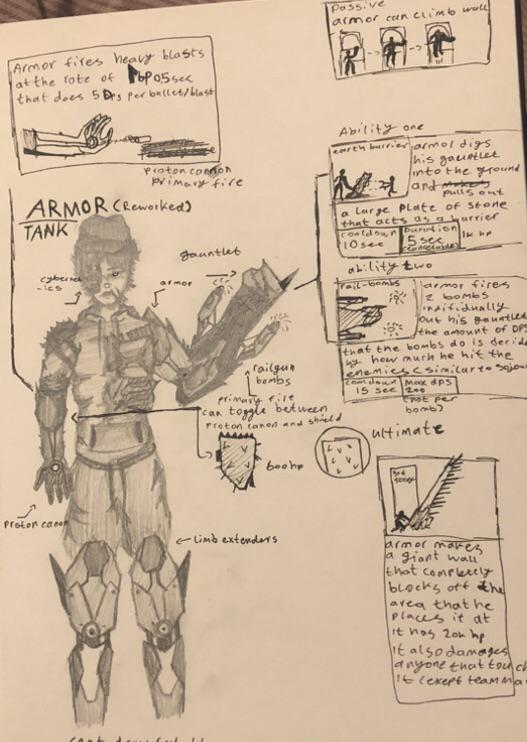 passive
armor can climb wall
Armor fires heavy blasts
at the rate of 1bp0.5sec
that does 5 Dps per bullet/blast
proton cannon
primary fire
ARMOR (Reworked)
TANK
gauntlet
cybernet
-ics
armor
railgun
bombs
primary fire
can toggle between
proton canon and shield
600hp
proton canon
limb extenders
Ability one
earth barrier
armor digs
his gauntlet
into the ground
and pulls out
a large plate of stone
that acts as a barrier
cooldown
10sec
Duration
5sec
1k hp
ability two
rail-bombs
armor fires
2 bombs
individually
out his gauntlet
the amount of DPS
that the bombs do is decided
by how much he hit the
enemies (similar to sojou
cooldown
15 sec
max dps
200
(not per
bomb)
ultimate
armor makes
a giant wall
that completely
blocks off the
area that he
places it at
it has 20k hp
it also damages
anyone that touch
it (exept teamma